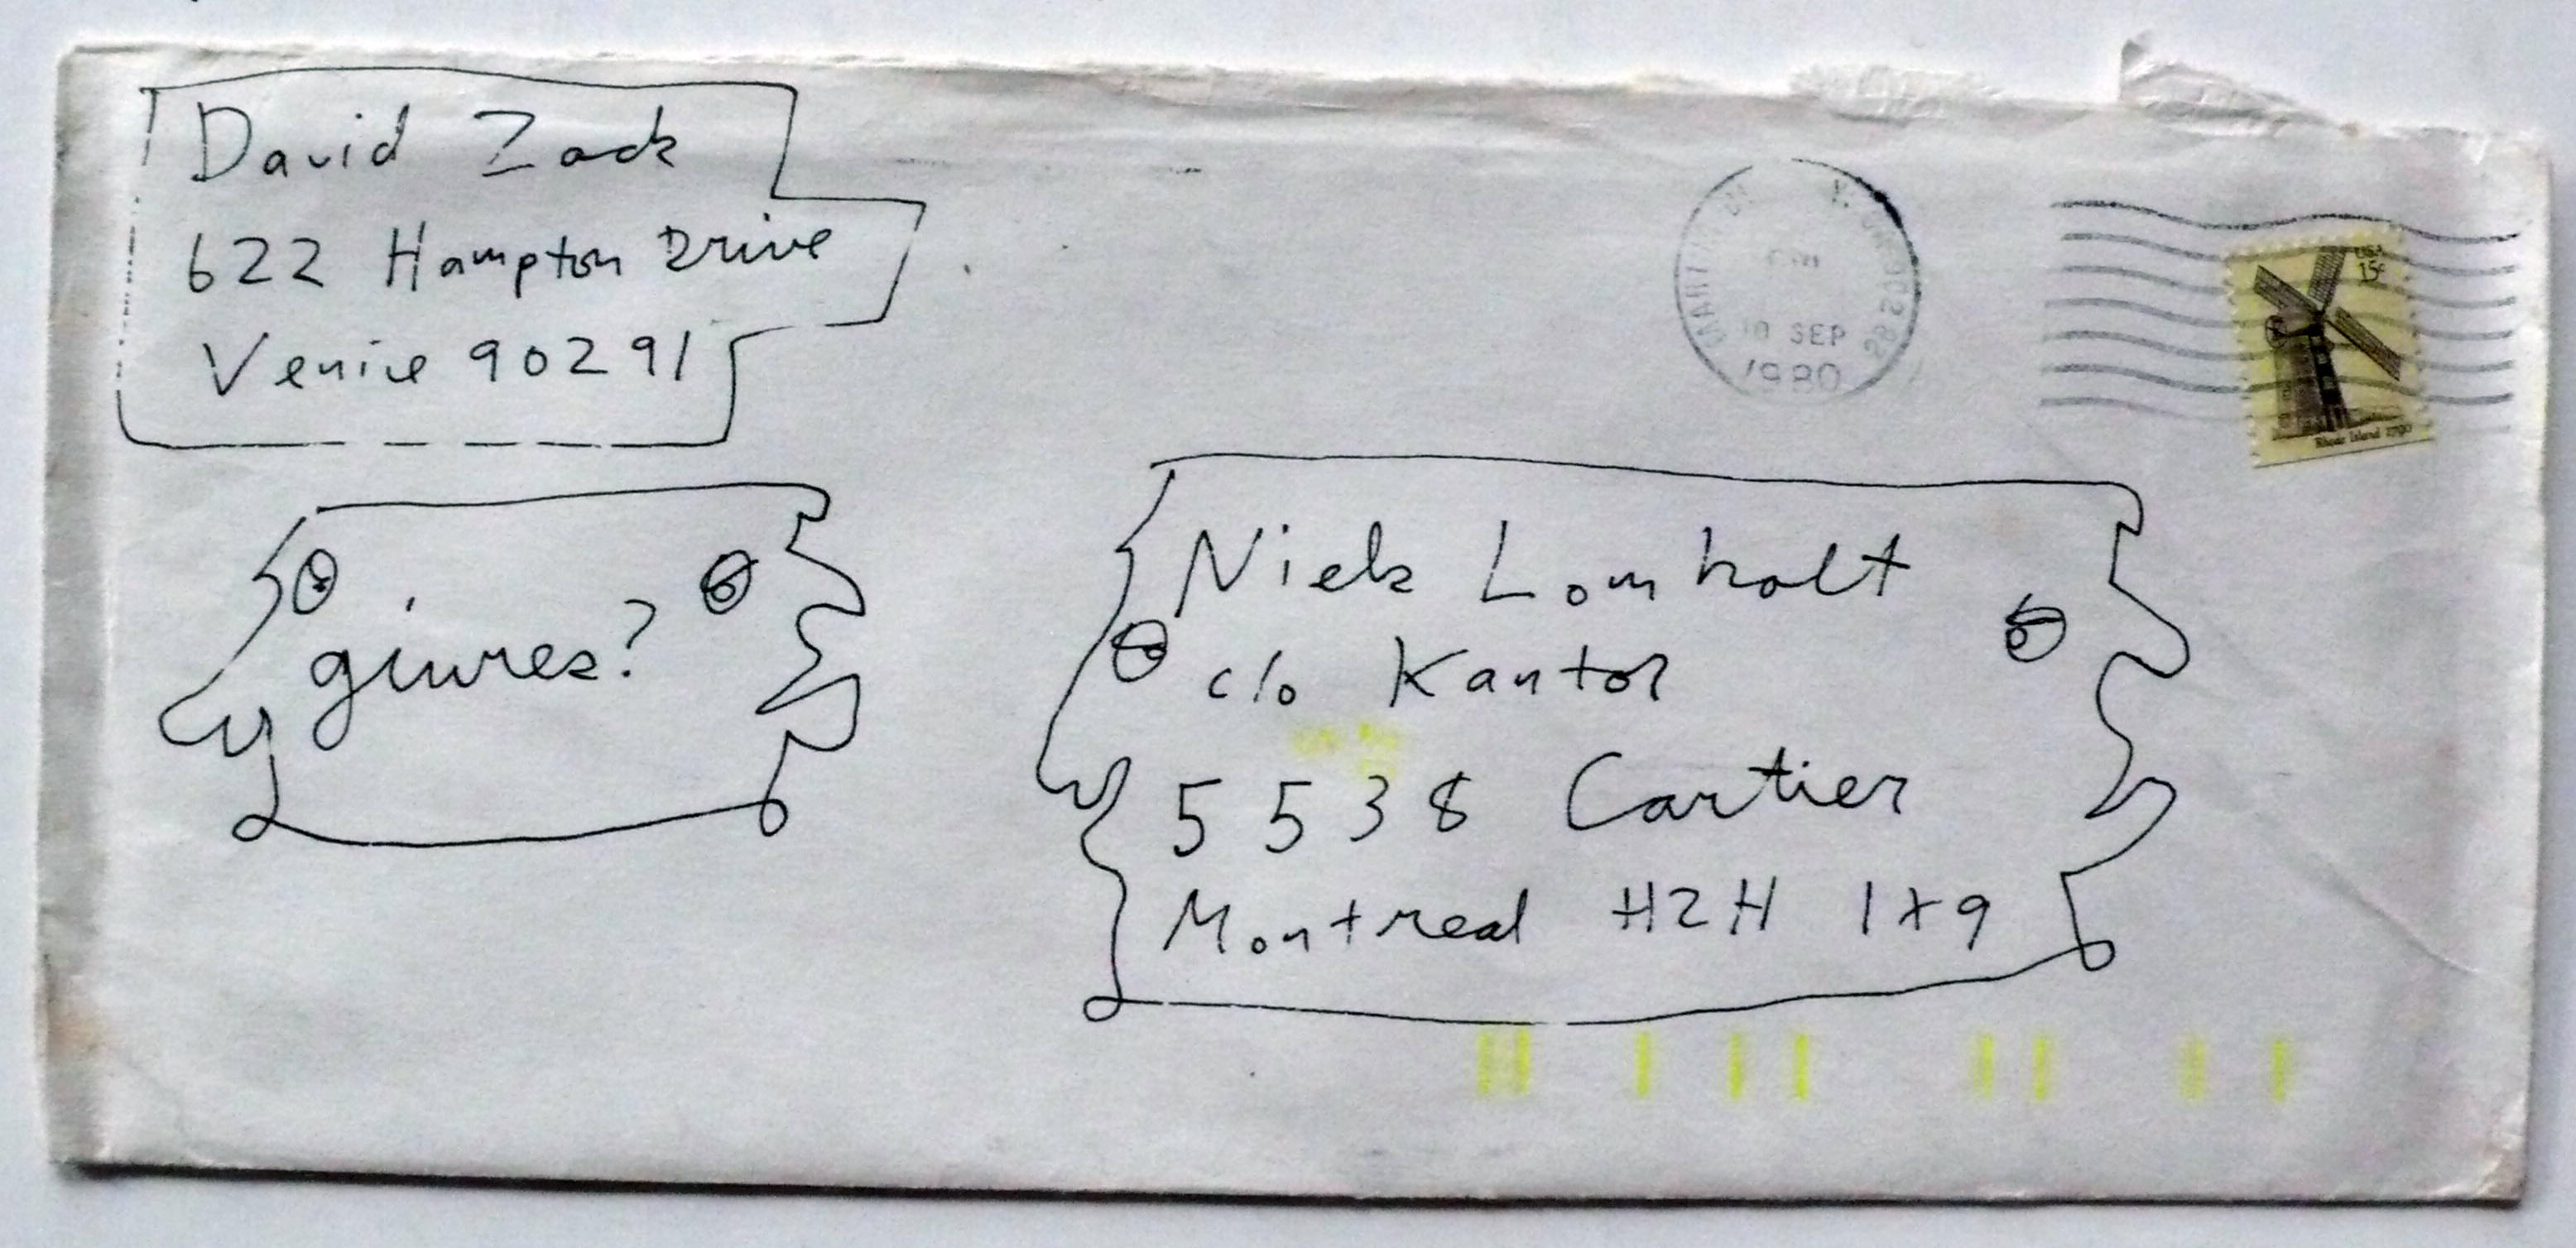 David Zack
622 Hampton Drive
Venice 90291
10 SEP
1980
USA
15c
Rhode Island 1790
giures?
Niels Lomholt
c/o Kantor
5538 Cartier
Montreal H2H 1X9